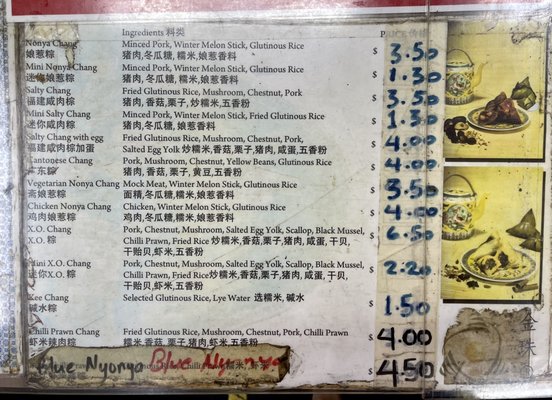 Ingredients 料类
PRICE 价格
Nonya Chang Minced Pork, Winter Melon Stick, Glutinous Rice $ 3.50
娘惹粽 猪肉,冬瓜糖,糯米,娘惹香料
Mini Nonya Chang Minced Pork, Winter Melon Stick, Glutinous Rice $ 1.30
迷你娘惹粽 猪肉,冬瓜糖,糯米,娘惹香料
Salty Chang Fried Glutinous Rice, Mushroom, Chestnut, Pork $ 3.50
福建咸肉粽 猪肉,香菇,栗子,炒糯米,五香粉
Mini Salty Chang Minced Pork, Winter Melon Stick, Fried Glutinous Rice $ 1.30
迷你咸肉粽 猪肉,冬瓜糖,糯米,娘惹香料
Salty Chang with egg Fried Glutinous Rice, Mushroom, Chestnut, Pork, $ 4.00
福建咸肉粽加蛋 Salted Egg Yolk 炒糯米,香菇,栗子,猪肉,咸蛋,五香粉
Cantonese Chang Pork, Mushroom, Chestnut, Yellow Beans, Glutinous Rice $ 4.00
广东粽 猪肉,香菇,栗子,黄豆,五香粉
Vegetarian Nonya Chang Mock Meat, Winter Melon Stick, Glutinous Rice $ 3.50
斋娘惹粽 面精,冬瓜糖,糯米,娘惹香料
Chicken Nonya Chang Chicken, Winter Melon Stick, Glutinous Rice $ 4.00
鸡肉娘惹粽 鸡肉,冬瓜糖,糯米,娘惹香料
X.O. Chang Pork, Chestnut, Mushroom, Salted Egg Yolk, Scallop, Black Mussel, $ 6.50
X.O. 粽 Chilli Prawn, Fried Rice 炒糯米,香菇,栗子,猪肉,咸蛋,干贝,
干贻贝,虾米,五香粉
Mini X.O. Chang Pork, Chestnut, Mushroom, Salted Egg Yolk, Scallop, Black Mussel, $ 2.20
迷你X.O. 粽 Chilli Prawn, Fried Rice炒糯米,香菇,栗子,猪肉,咸蛋,干贝,
干贻贝,虾米,五香粉
Kee Chang Selected Glutinous Rice, Lye Water 选糯米,碱水 $ 1.50
碱水粽
Chilli Prawn Chang Fried Glutinous Rice, Mushroom, Chestnut, Pork, Chilli Prawn $ 4.00
虾米辣肉粽 糯米,香菇,栗子,猪肉,虾米,五香粉
Blue Nyonya Blue Nyonya $ 4.50
金珠